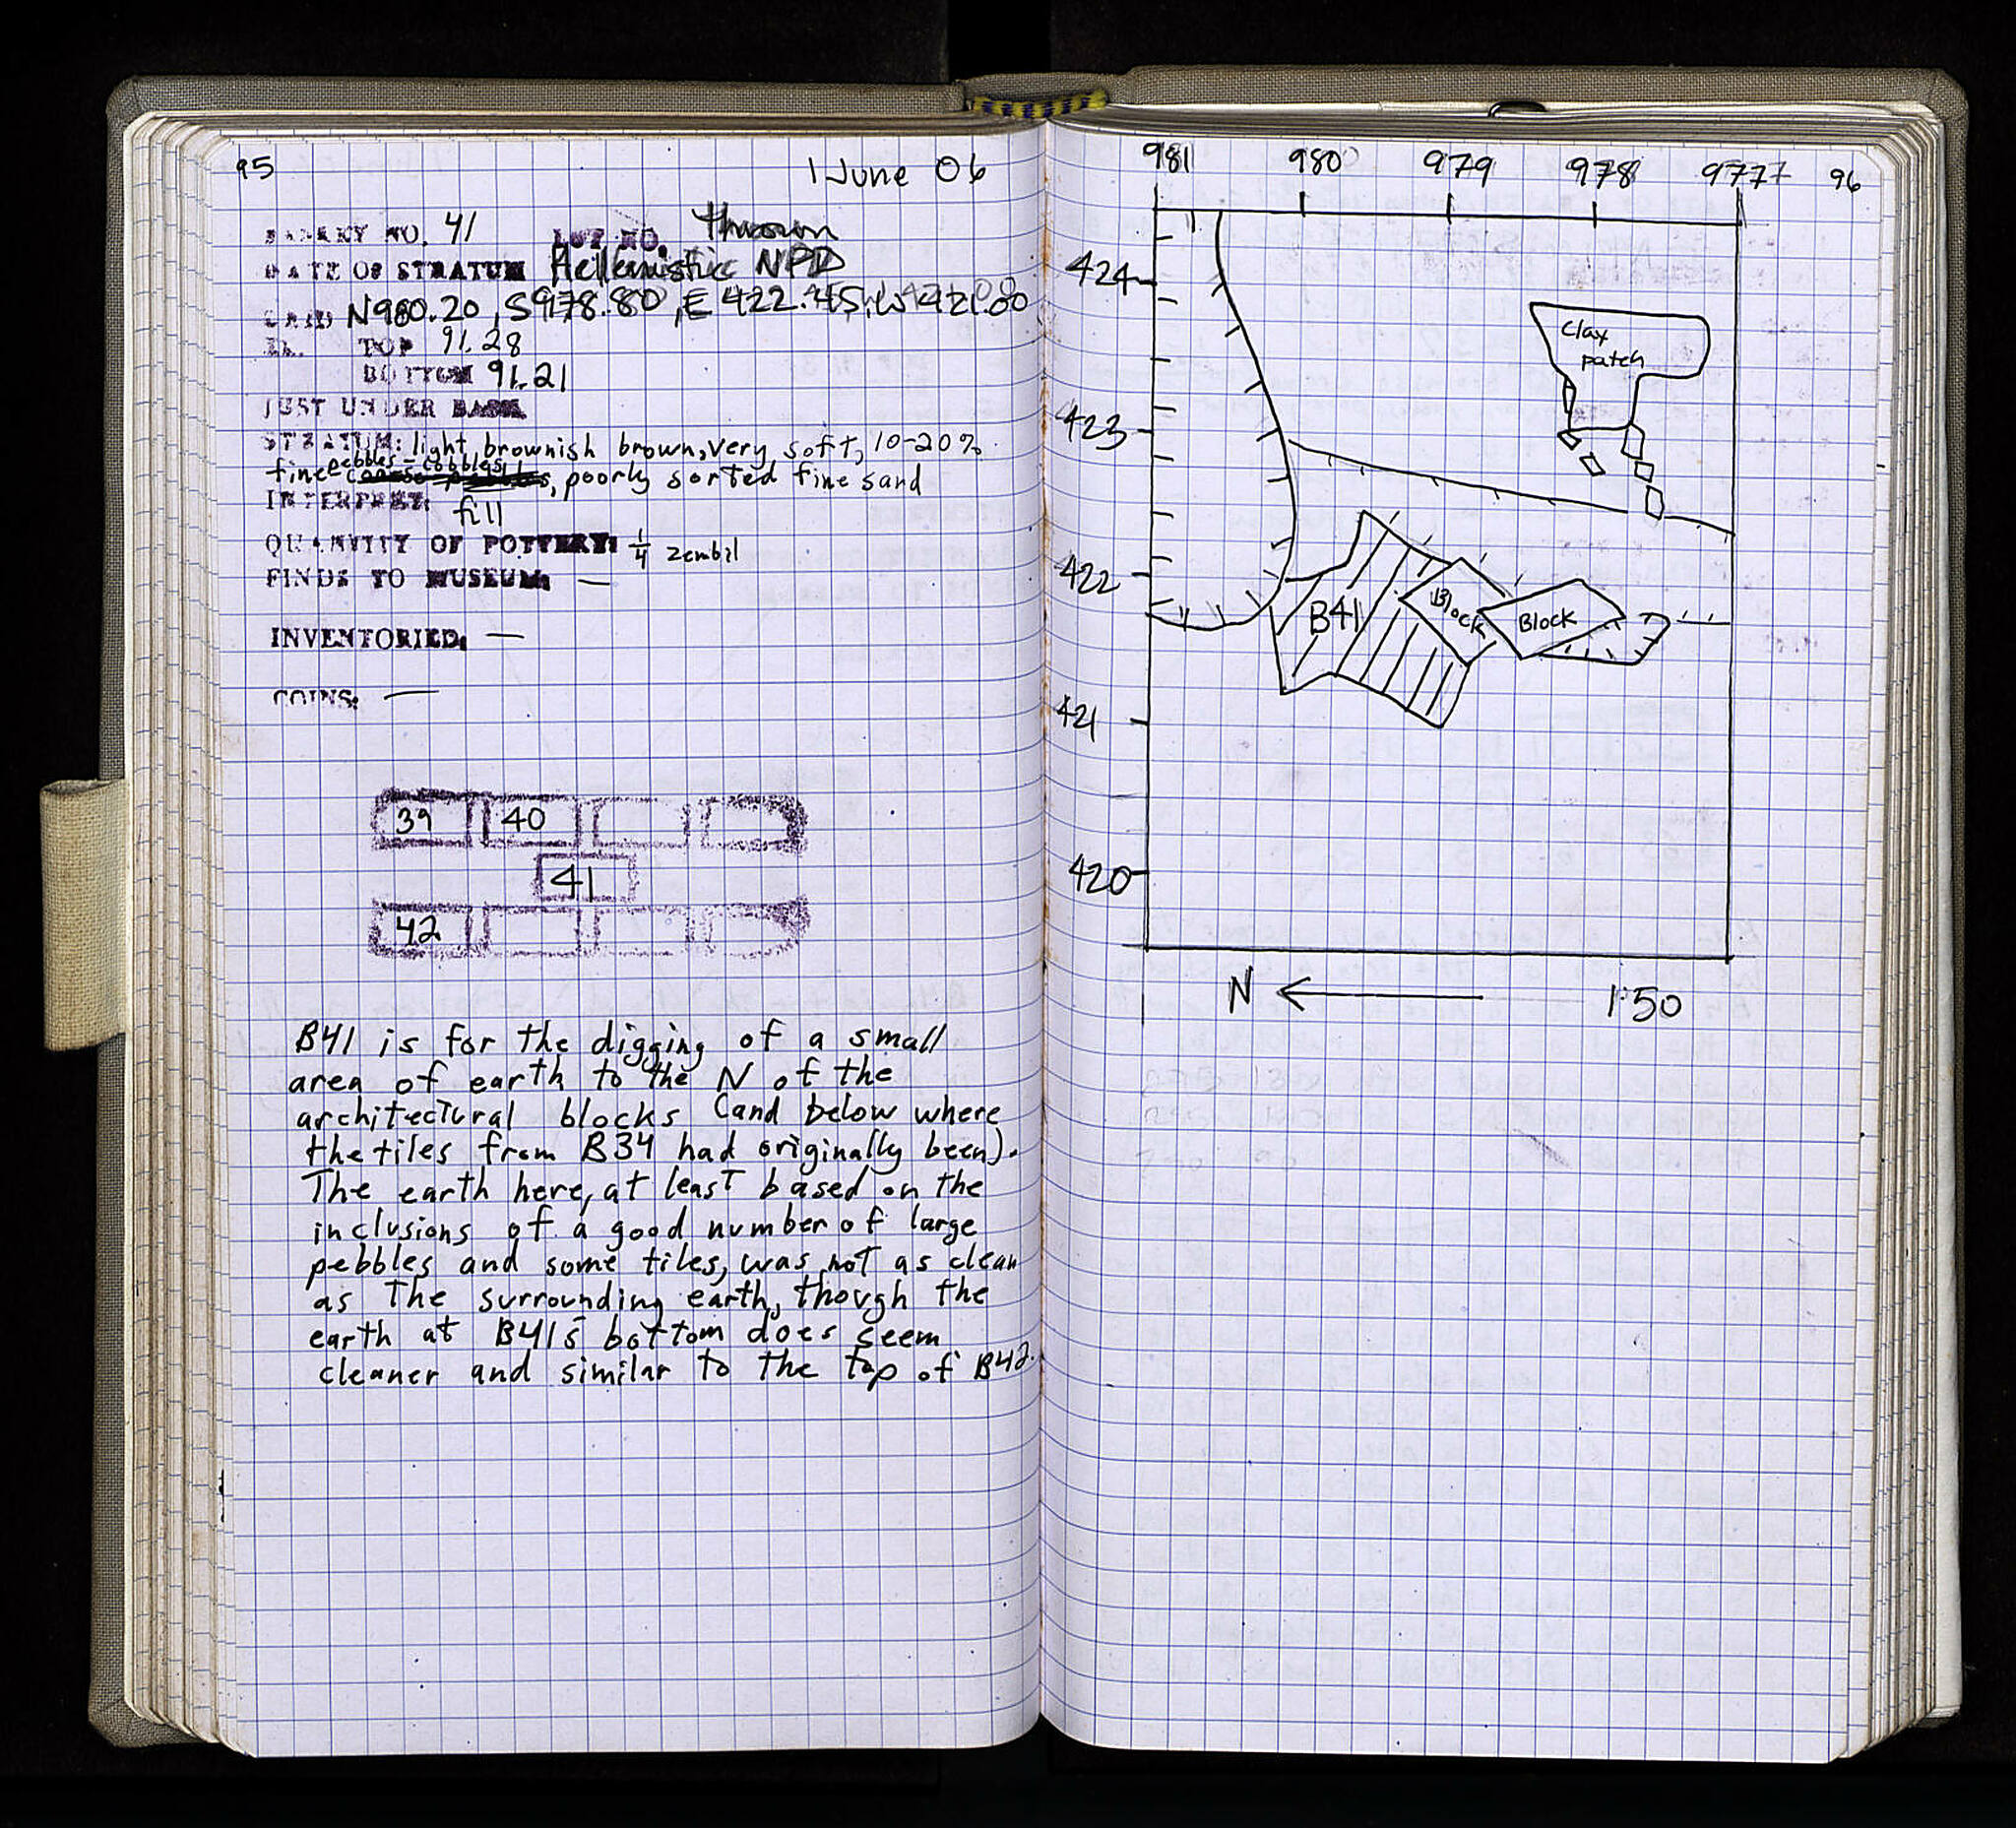 95
1 June 06
BASKET NO. 41 LOT NO. thrown
DATE OF STRATUM Hellenistic NPD
GRID N980.20, S978.80, E 422.45, W 421.00
EL. TOP 91.28
BOTTOM 91.21
JUST UNDER BASK
STRATUM: light brownish brown, very soft, 10-20%
pebbles-cobbles
fine, poorly sorted fine sand
INTERPRET: fill
QUANTITY OF POTTERY: 1/4 zembil
FINDS TO MUSEUM: —
INVENTORIED: —
COINS: —
39 40
41
42
B41 is for the digging of a small
area of earth to the N of the
architectural blocks (and below where
the tiles from B34 had originally been).
The earth here, at least based on the
inclusions of a good number of large
pebbles and some tiles, was not as clean
as the surrounding earth, though the
earth at B41s bottom does seem
cleaner and similar to the top of B42.
981 980 979 978 977
96
424
Clay
patch
423
422
B41
Block
Block
421
420
N ← 1:50